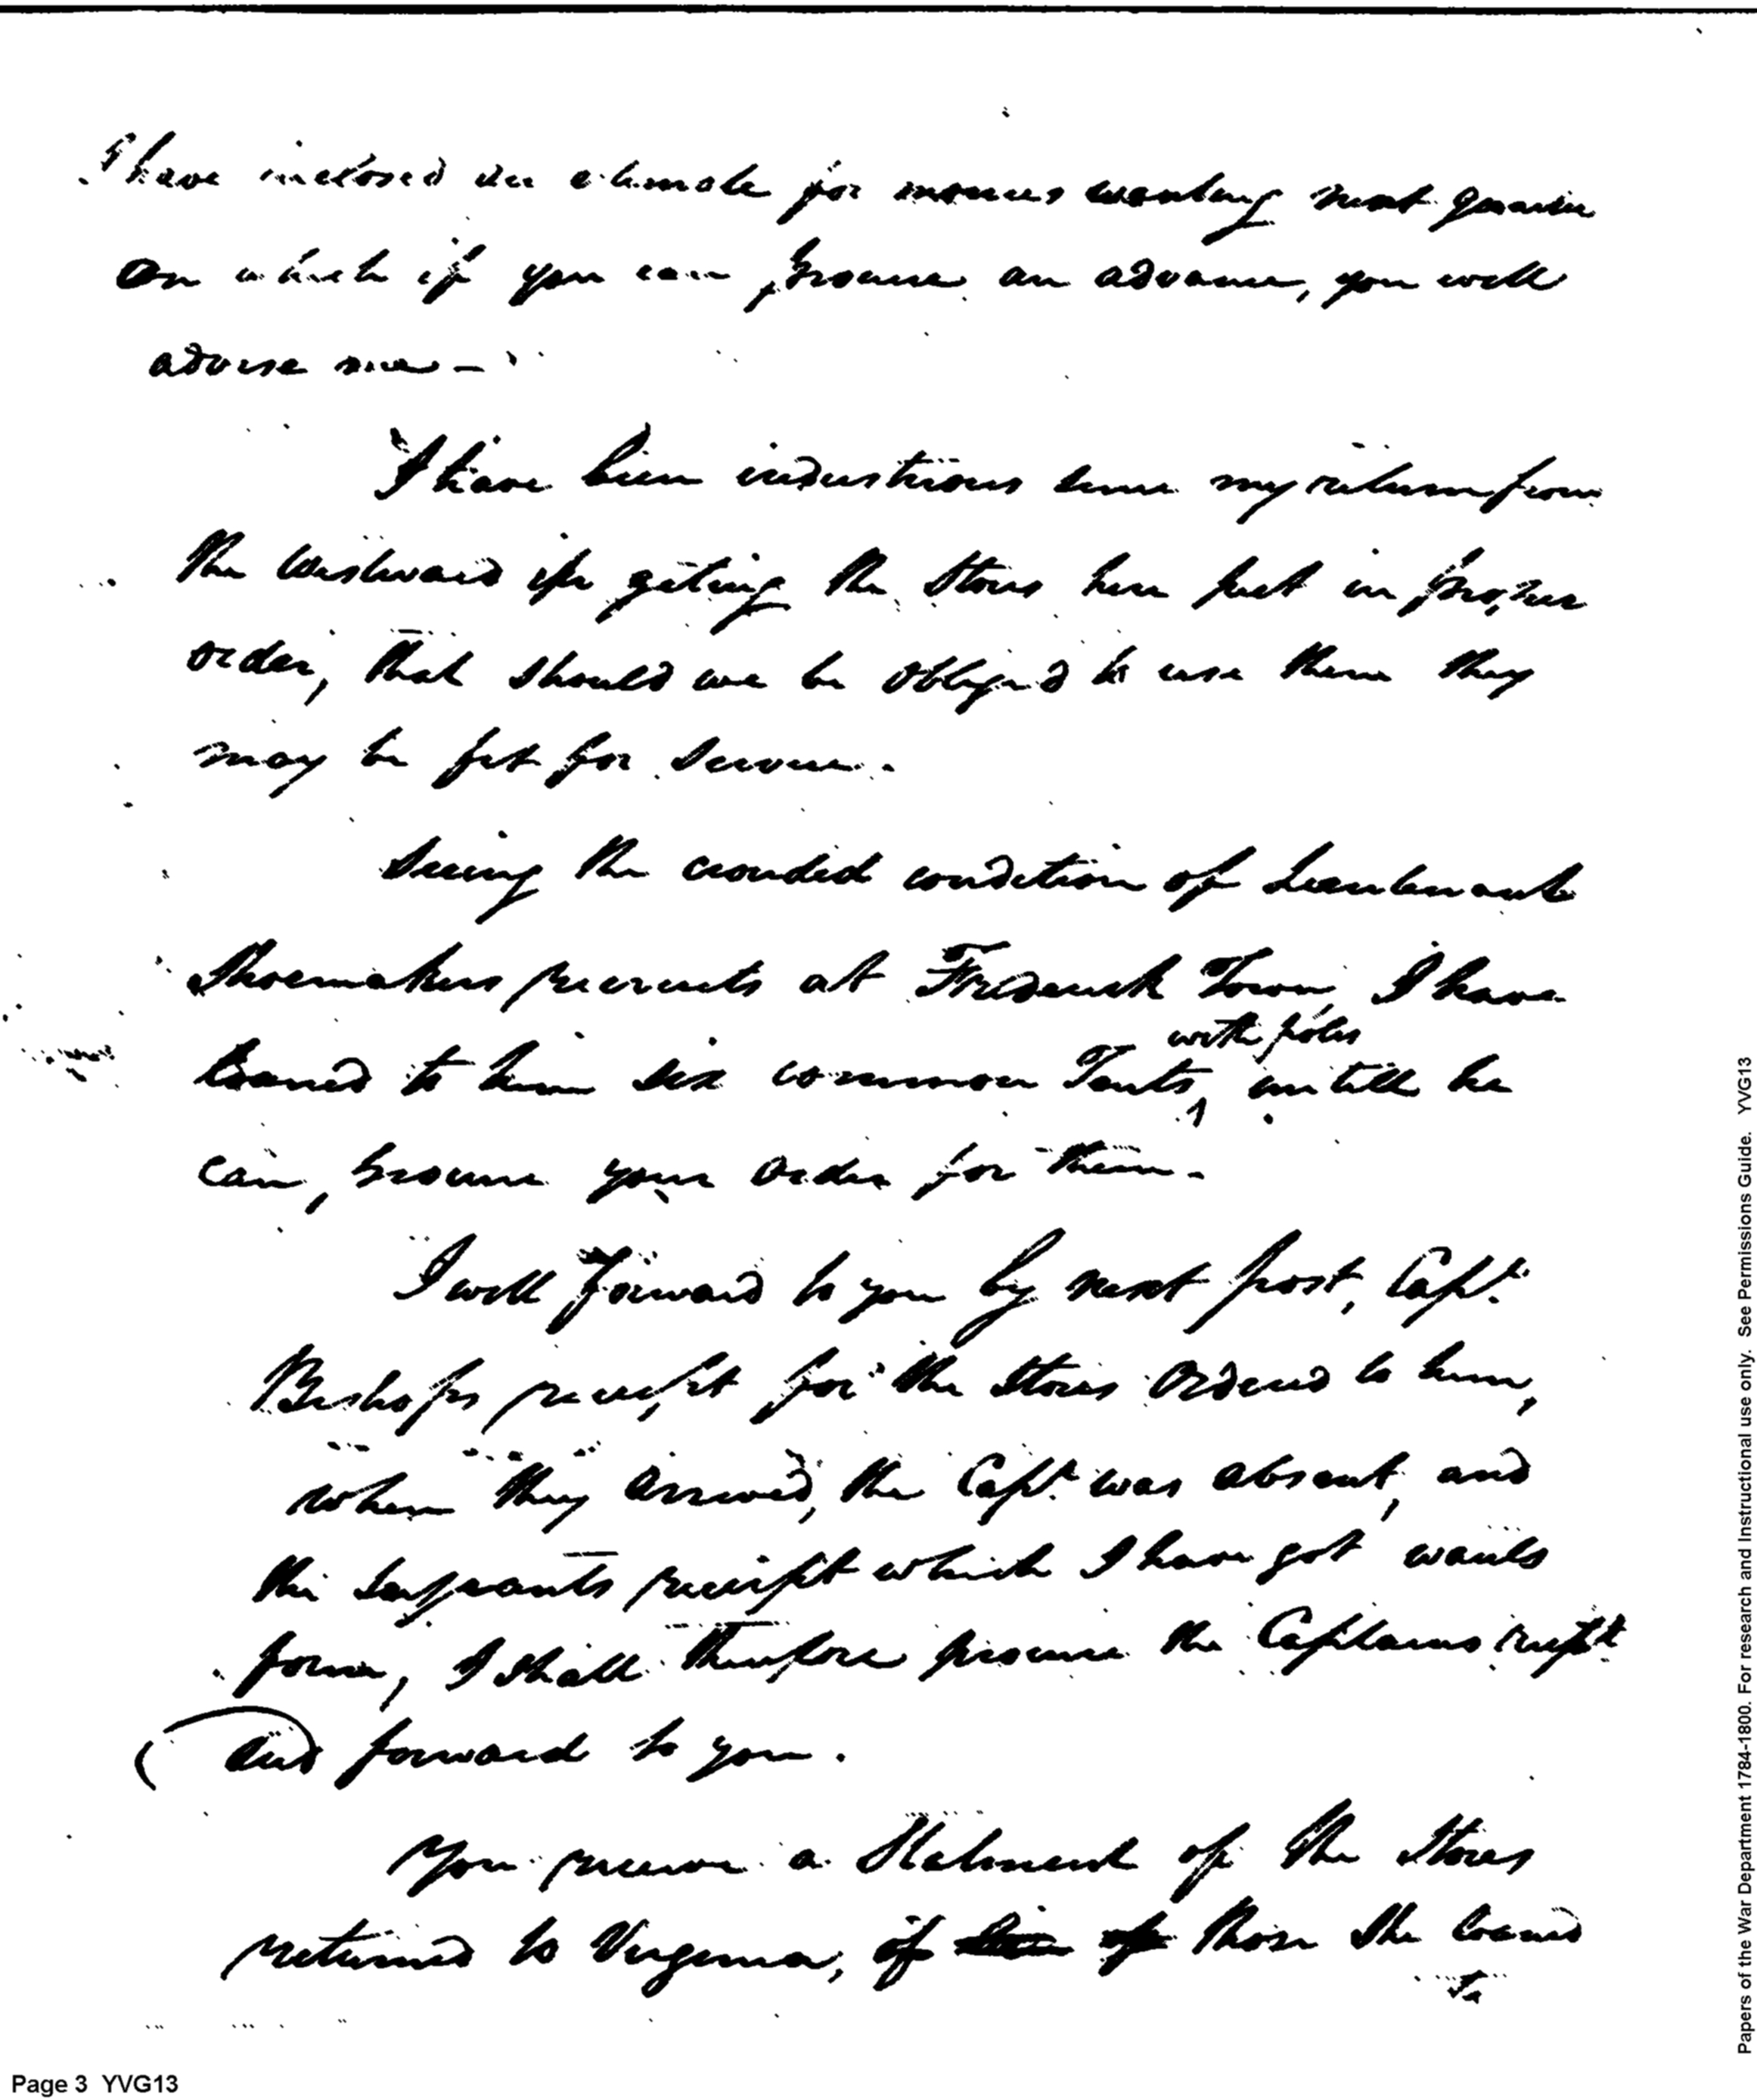 I have inclosed an estimate for monies wanting next quarter
on which if you can procure an advance, you will
advise me —
I have been industrious since my return from
the Westward in geting the Stores here put in proper
order, that should we be obliged to use them they
may be fit for Service.
Seeing the crouded condition of Lieutenant
Shoemakers recruits at Frederick Town I have
with poles
loaned to him six common Tents, untill he
can, procure your order for them -
I will Forward to you by next post, Capt.
Bishops receipt for the Stores ordered to him,
when they arrived, the Capt. was absent, and
the Serjeants receipt which I have got wants
form, I shall therefore procure the Captains receipt
and forward to you.
You receive a Statement of the Stores
returned to Virginia, of those she loaned
To
Page 3 YVG13
Papers of the War Department 1784-1800. For research and Instructional use only. See Permissions Guide. YVG13